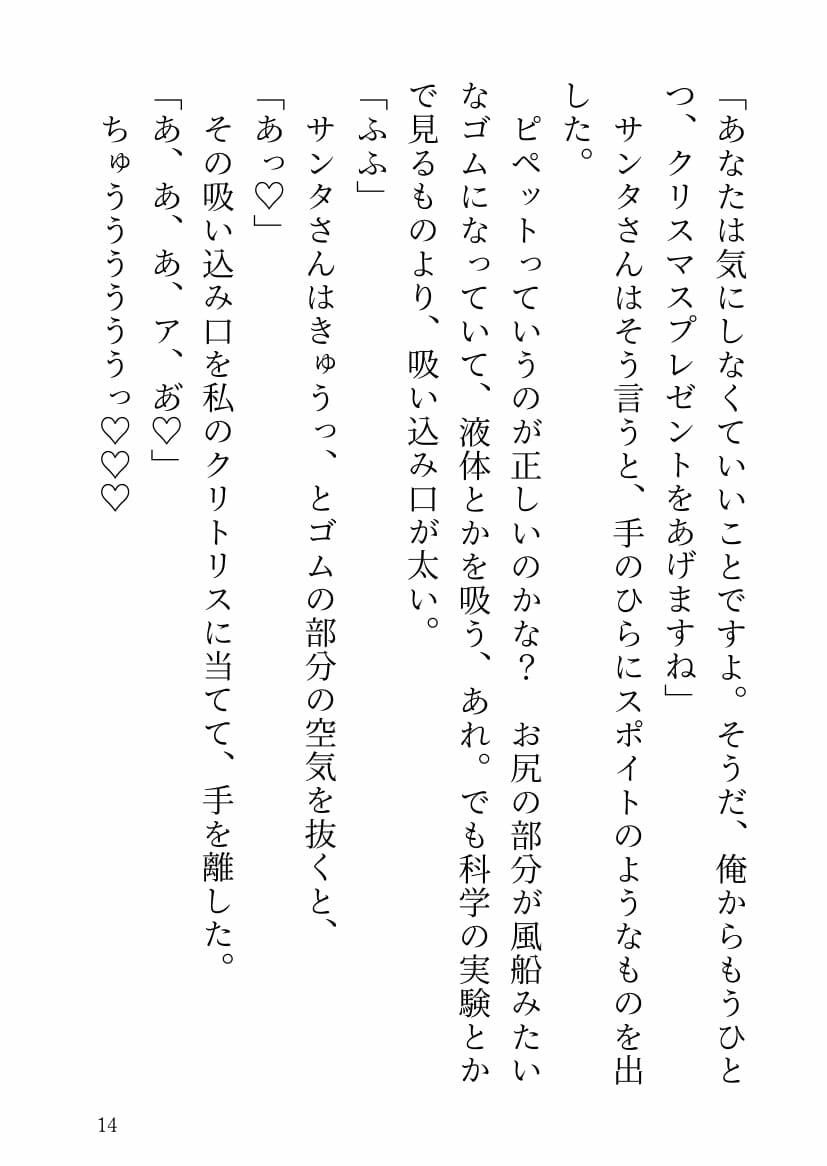 「あなたは気にしなくていいことですよ。そうだ、俺からもうひと
つ、クリスマスプレゼントをあげますね」
サンタさんはそう言うと、手のひらにスポイトのようなものを出
した。
ピペットっていうのが正しいのかな？　お尻の部分が風船みたい
なゴムになっていて、液体とかを吸う、あれ。でも科学の実験とか
で見るものより、吸い込み口が太い。
「ふふ」
サンタさんはきゅうっ、とゴムの部分の空気を抜くと、
「あっ♡」
その吸い込み口を私のクリトリスに当てて、手を離した。
「あ、あ、あ、ア、あ゙♡」
ちゅうううううっ♡♡♡
14